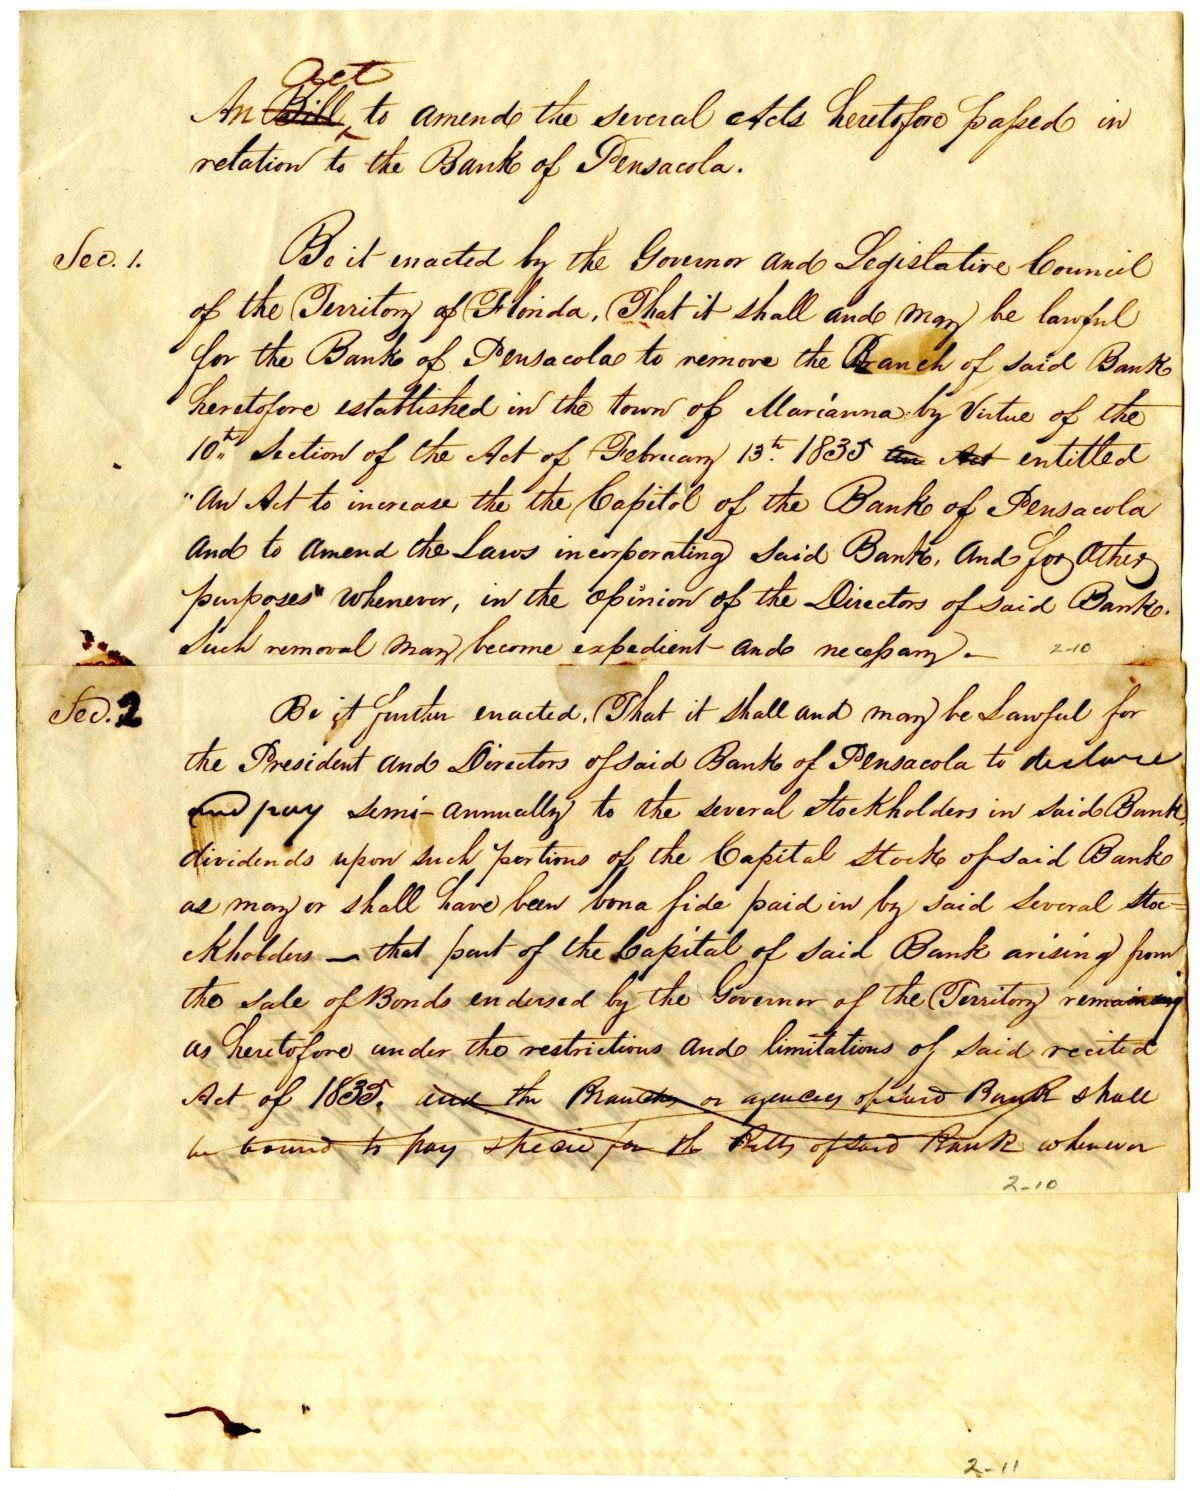 act
An Bill to amend the several Acts heretofore passed in
relation to the Bank of Pensacola.
Sec. 1. Be it enacted by the Governor and Legislative Council
of the Territory of Florida, That it shall and may be lawful
for the Bank of Pensacola to remove the Branch of said Bank
heretofore established in the town of Marianna by Virtue of the
10th Section of the Act of February 13th. 1835 an Act entitled
"An Act to increase the the Capitol of the Bank of Pensacola
and to amend the Laws incorporating said Bank, and for other
purposes" whenever, in the opinion of the Directors of said Bank.
Such removal may become expedient and necessary.
2-10
Sec. 2 Be it further enacted, That it shall and may be Lawful for
the President and Directors of said Bank of Pensacola to declare
and pay semi-annually to the several stockholders in said Bank,
dividends upon such portions of the Capital stock of said Bank
as may or shall have been bona fide paid in by said several stoc=
ckholders — that part of the Capital of said Bank arising from
the sale of Bonds endorsed by the Governor of the Territory remaining
as heretofore under the restrictions and limitations of said recited
Act of 1835. and the Branches or agencies of said Bank shall
be bound to pay specie for the Bills of said Bank whenever
2-10
2-11